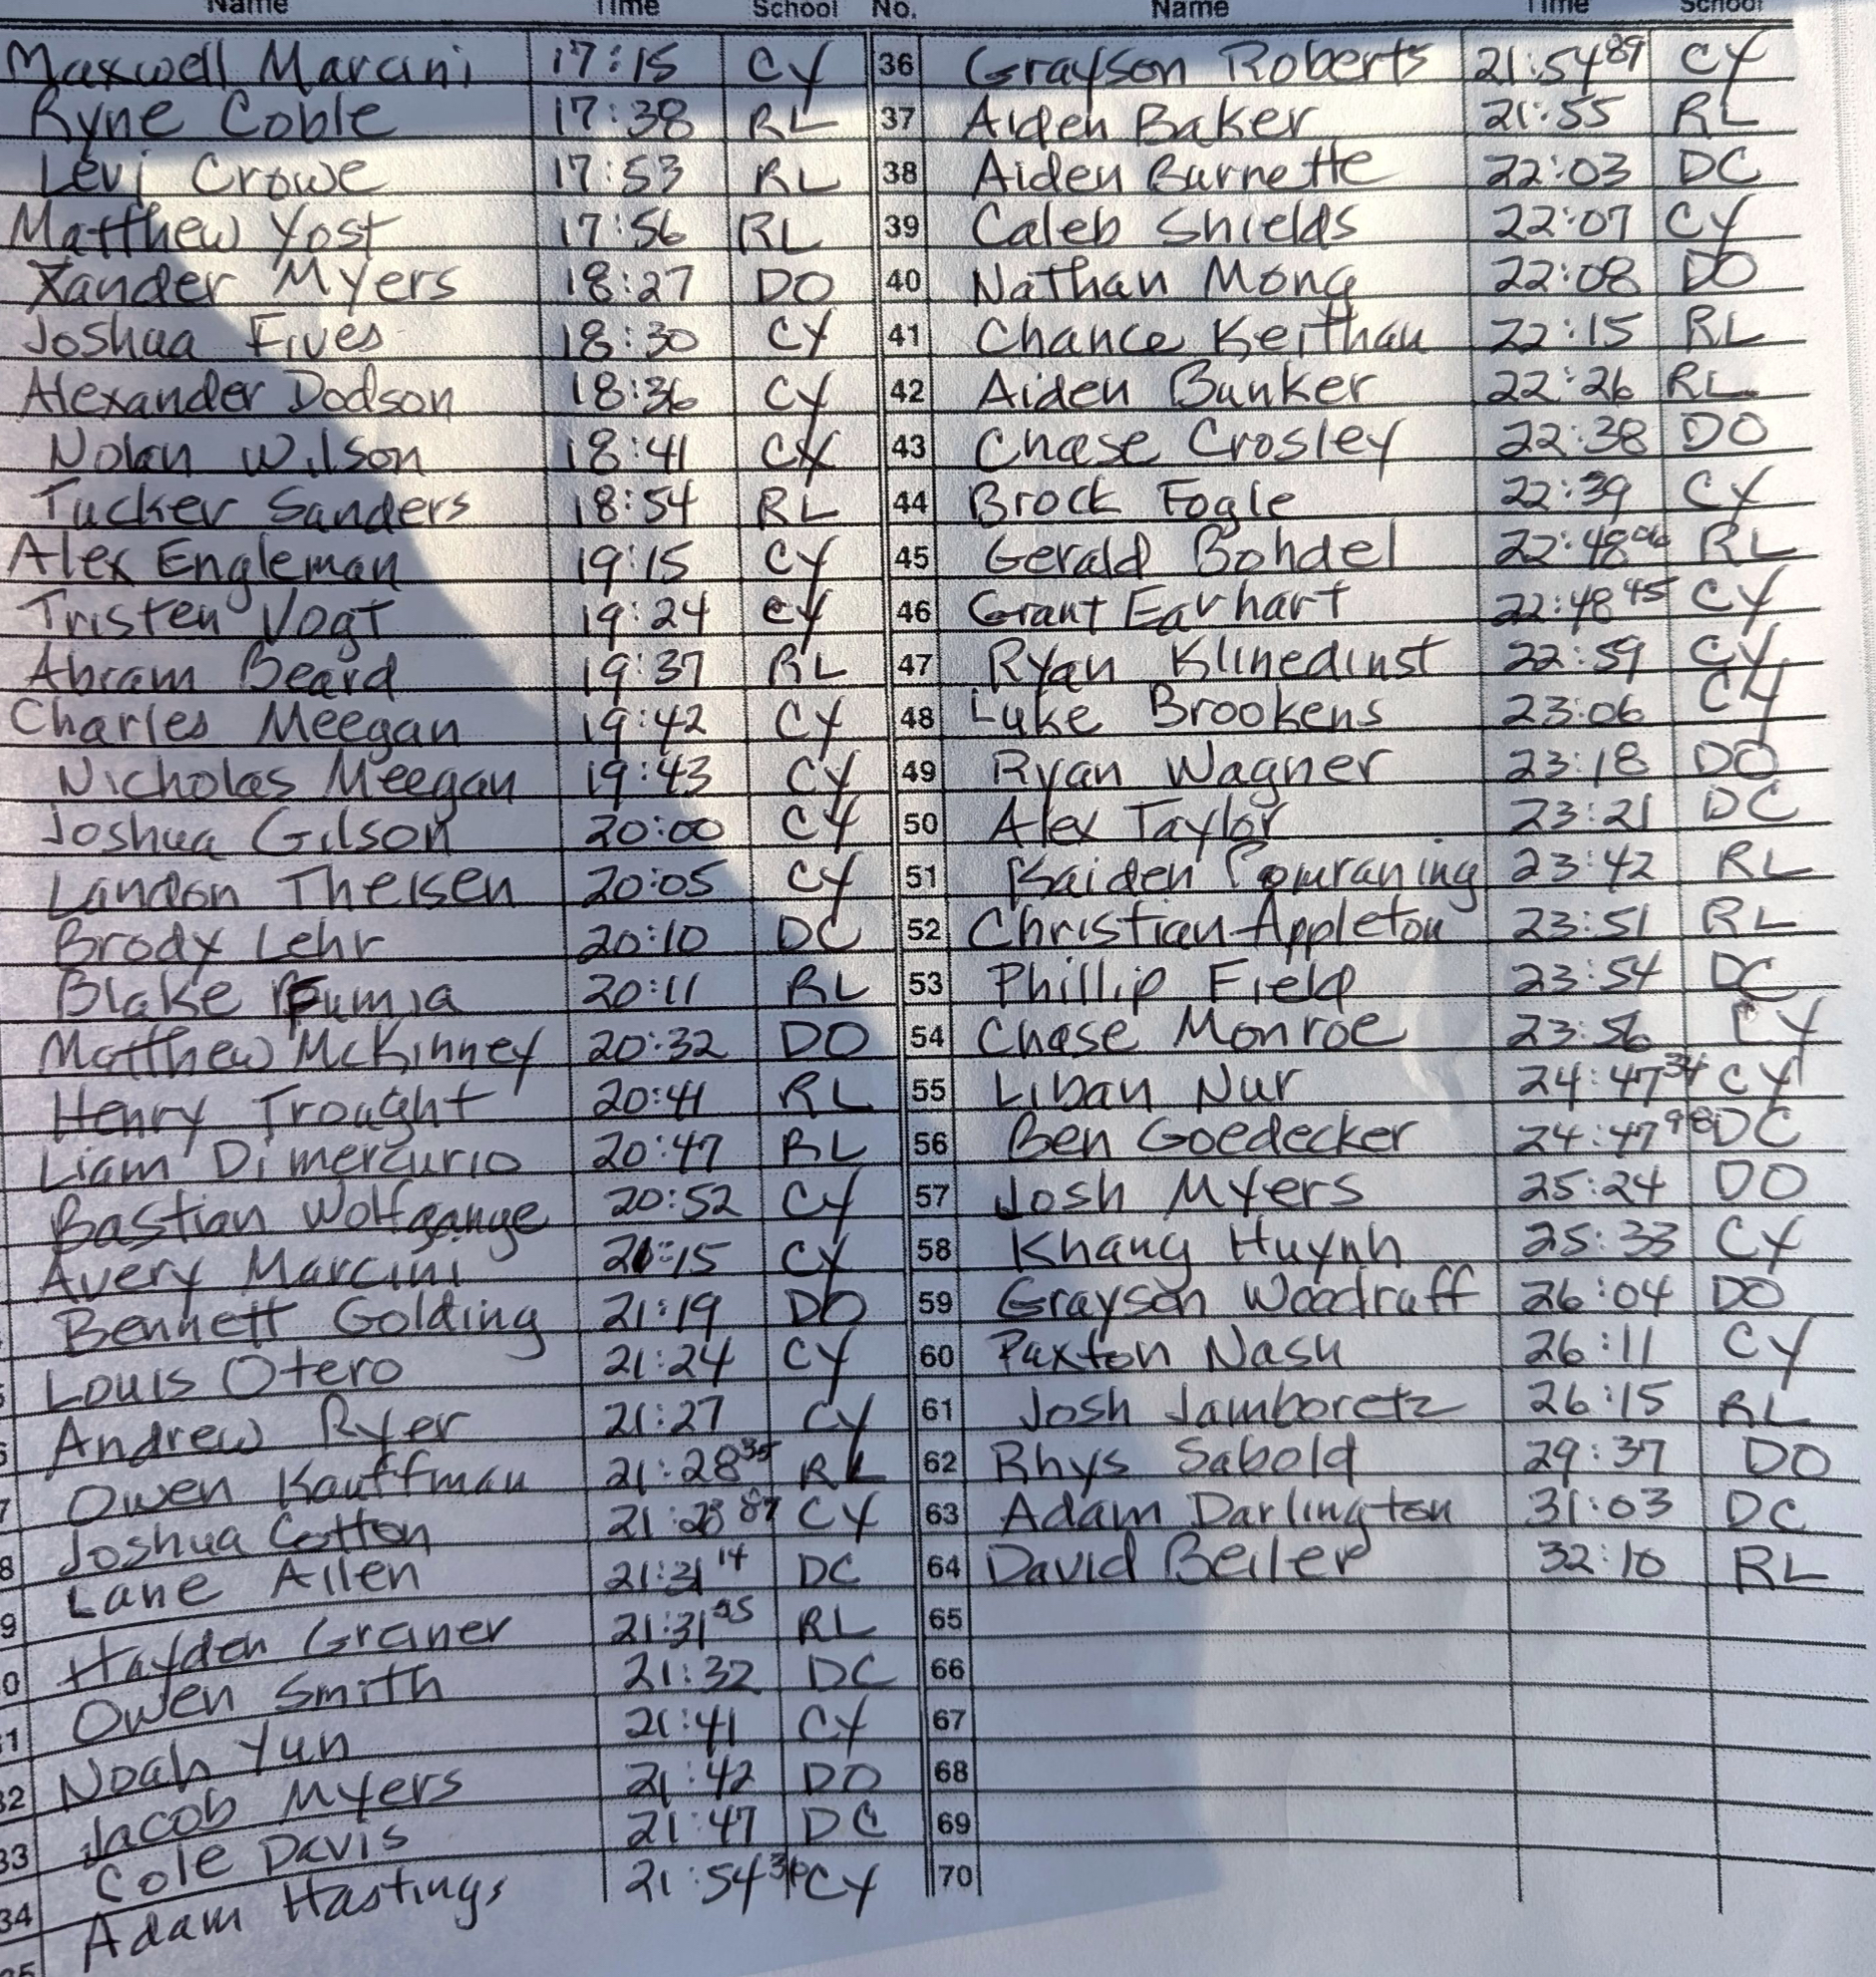 Name Time School No. Name Time School
Maxwell Marcini 17:15 CY
Ryne Coble 17:38 RL
Levi Crowe 17:53 RL
Matthew Yost 17:56 RL
Xander Myers 18:27 DO
Joshua Fives 18:30 CY
Alexander Dodson 18:36 CY
Nolan Wilson 18:41 CY
Tucker Sanders 18:54 RL
Alex Engleman 19:15 CY
Tristen Vogt 19:24 CY
Abram Beard 19:37 RL
Charles Meegan 19:42 CY
Nicholas Meegan 19:43 CY
Joshua Gilson 20:00 CY
Landon Theisen 20:05 CY
Brody Lehr 20:10 DC
Blake Fumia 20:11 RL
Matthew McKinney 20:32 DO
Henry Trought 20:41 RL
Liam Dimercurio 20:47 RL
Bastian Wolfgange 20:52 CY
Avery Marcini 21:15 CY
Bennett Golding 21:19 DO
Louis Otero 21:24 CY
Andrew Ryer 21:27 CY
Owen Kauffman 21:28 35 RL
Joshua Cotton 21:28 87 CY
Lane Allen 21:31 14 DC
Hayden Greiner 21:31 95 RL
Owen Smith 21:32 DC
Noah Yun 21:41 CY
32 Jacob Myers 21:42 DO
33 Cole Davis 21:47 DC
34 Adam Hastings 21:54 CY
36 Grayson Roberts 21:54 89 CY
37 Aiden Baker 21:55 RL
38 Aiden Burnette 22:03 DC
39 Caleb Shields 22:07 CY
40 Nathan Mong 22:08 DO
41 Chance Keithan 22:15 RL
42 Aiden Bunker 22:26 RL
43 Chase Crosley 22:38 DO
44 Brock Fogle 22:39 CY
45 Gerald Bohdel 22:48 RL
46 Grant Earhart 22:48 45 CY
47 Ryan Klinedinst 22:59 CY
48 Luke Brookens 23:06 CY
49 Ryan Wagner 23:18 DO
50 Alex Taylor 23:21 DC
51 Kaiden Pomraning 23:42 RL
52 Christian Appleton 23:51 RL
53 Phillip Field 23:54 DC
54 Chase Monroe 23:56 CY
55 Liban Nur 24:47 34 CY
56 Ben Goedecker 24:47 98 DC
57 Josh Myers 25:24 DO
58 Khang Huynh 25:33 CY
59 Grayson Woodruff 26:04 DO
60 Paxton Nash 26:11 CY
61 Josh Jamboretz 26:15 RL
62 Rhys Sabold 29:37 DO
63 Adam Darlington 31:03 DC
64 David Beiler 32:10 RL
65
66
67
68
69
70